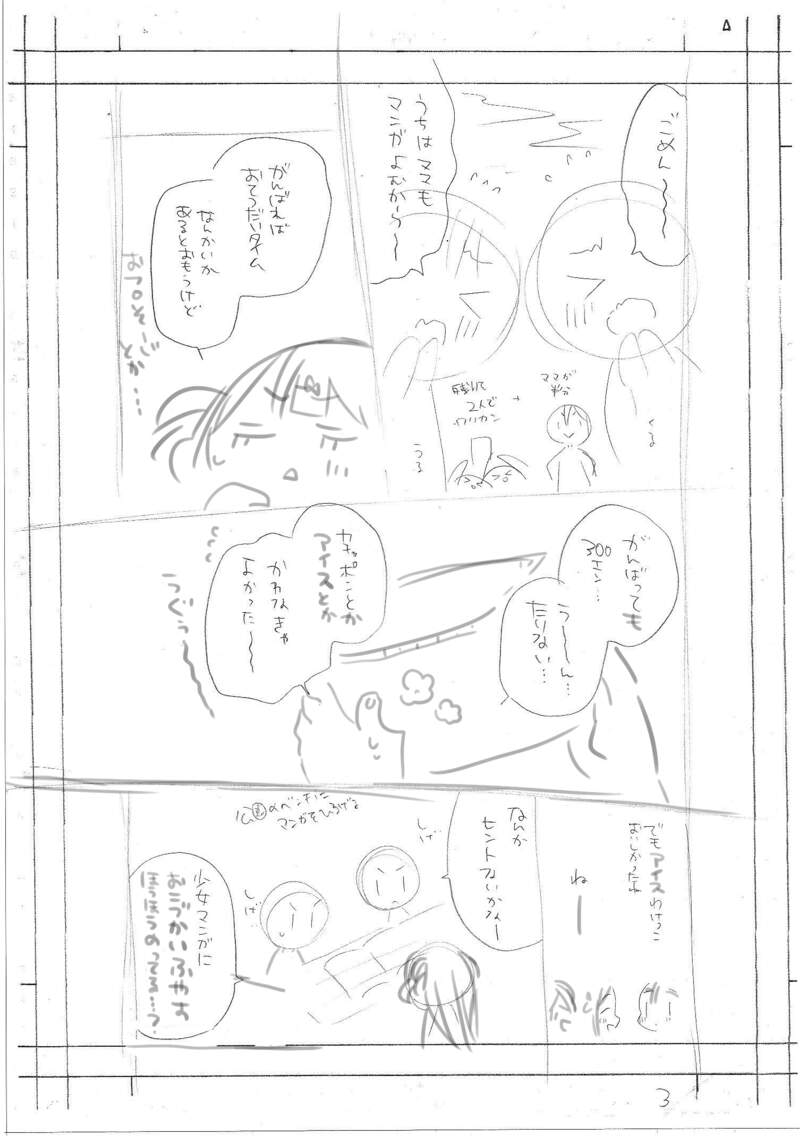 ごめん〜〜〜
うちはママも
マンガよむから〜〜
ママが
半分
残りて
2人で
ワリカン
くる
うる
がんばれば
おてつだいタイム
なんかいか
あるとおもうけど
おフロそーじ
とか…
がんばっても
300
エン…
う〜〜ん…
たりない…
ガチャポンとか
アイスとか
かわなきゃ
よかった〜〜
うぐぅ〜〜
でもアイスわけっこ
おいしかったね
ねー
なんか
ヒントないかなー
しげ…
しげ…
ベンチに
マンガをひろげる
少女マンガに
おこづかいふやす
ほうほうのってる…?
3